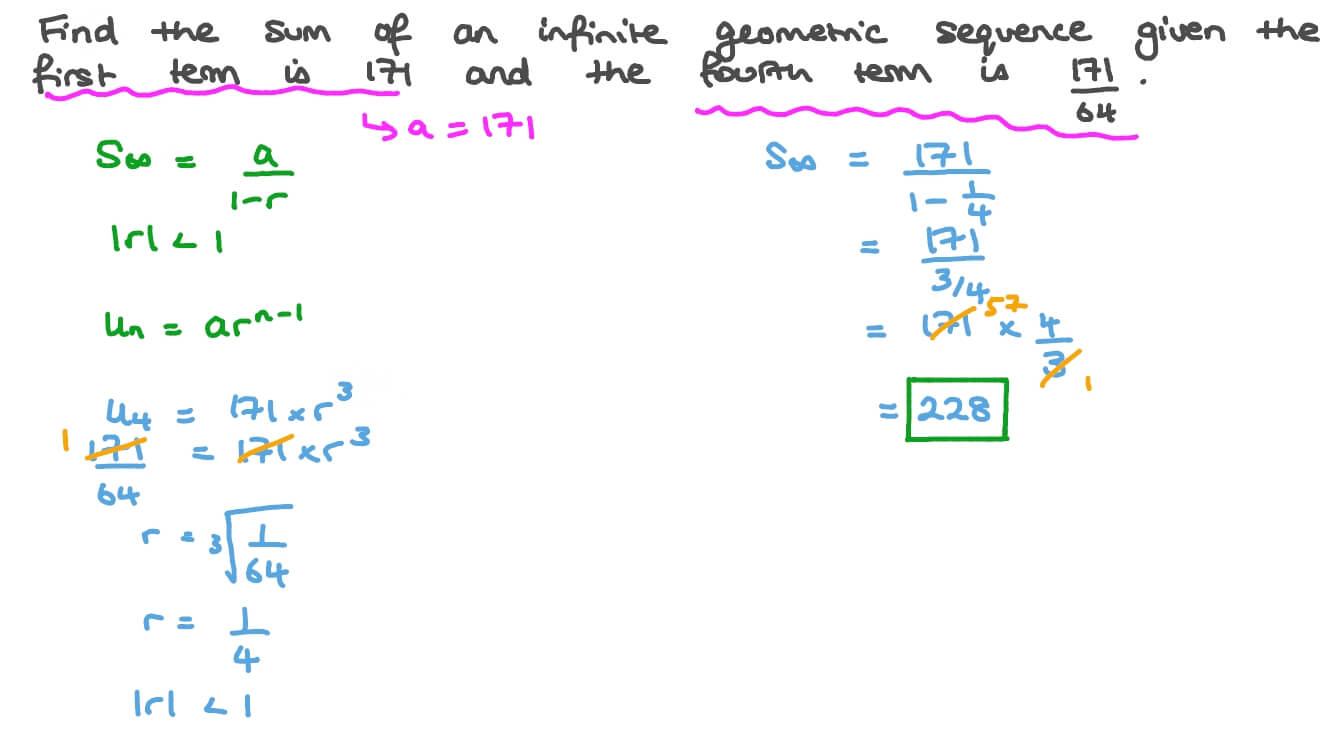 Find the sum of an infinite geometric sequence given the
first term is 171 and the fourth term is 171/64.
↳ a = 171
S∞ = a/(1-r)
|r| < 1
uₙ = arⁿ⁻¹
u₄ = 171 × r³
1 171/64 = 171 × r³
r = ³√(1/64)
r = 1/4
|r| < 1
S∞ = 171/(1 - 1/4)
= 171/(3/4)
= 171 57 × 4/3 1
= 228